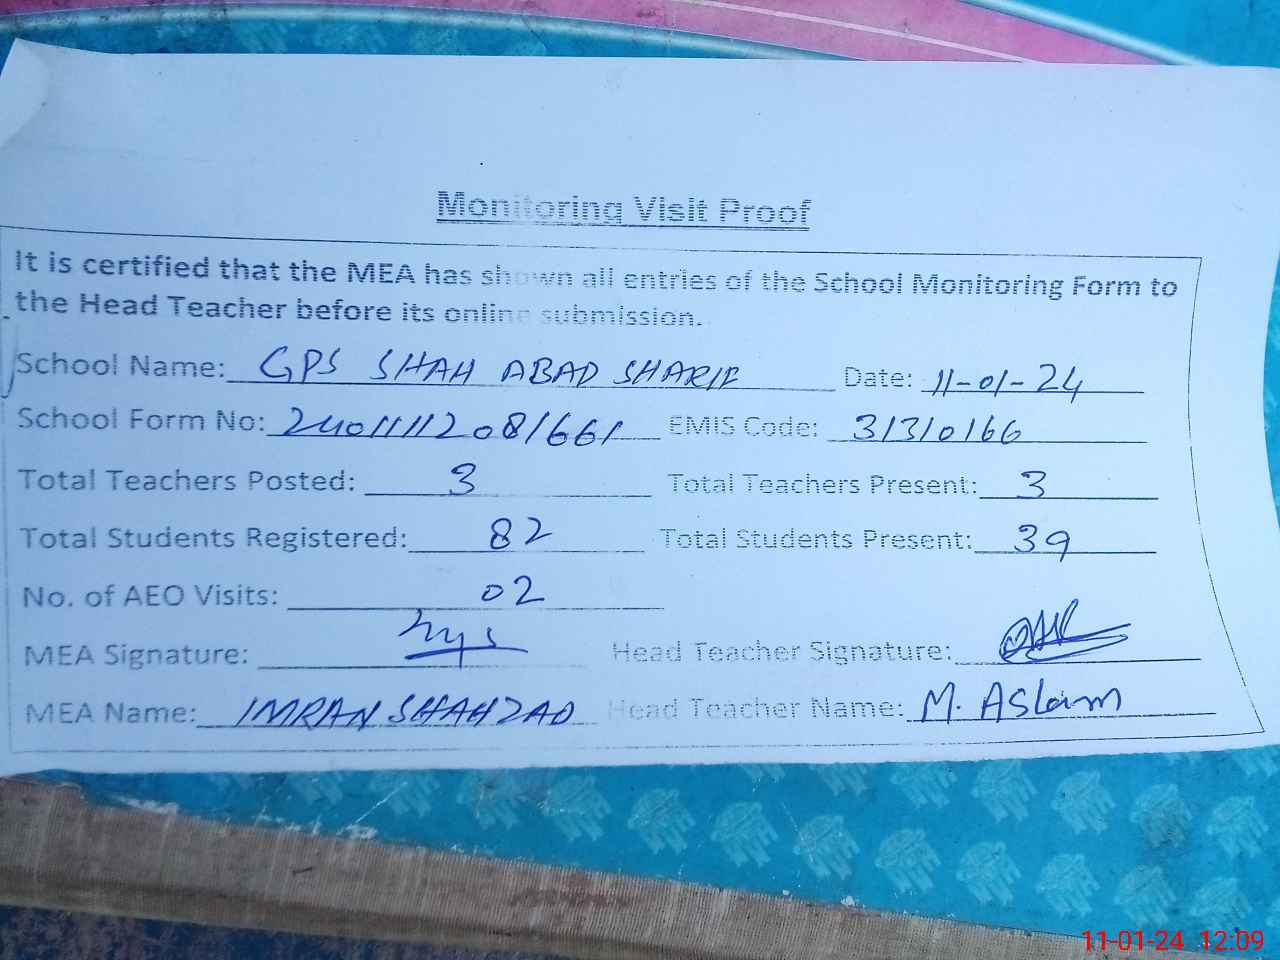 Monitoring Visit Proof
It is certified that the MEA has shown all entries of the School Monitoring Form to
the Head Teacher before its online submission.
School Name: GPS SHAH ABAD SHARIF Date: 11-01-24
School Form No: 240111112081661 EMIS Code: 31310166
Total Teachers Posted: 3 Total Teachers Present: 3
Total Students Registered: 82 Total Students Present: 39
No. of AEO Visits: 02
MEA Signature: Head Teacher Signature:
MEA Name: IMRAN SHAHZAD Head Teacher Name: M. Aslam
11-01-24 12:09